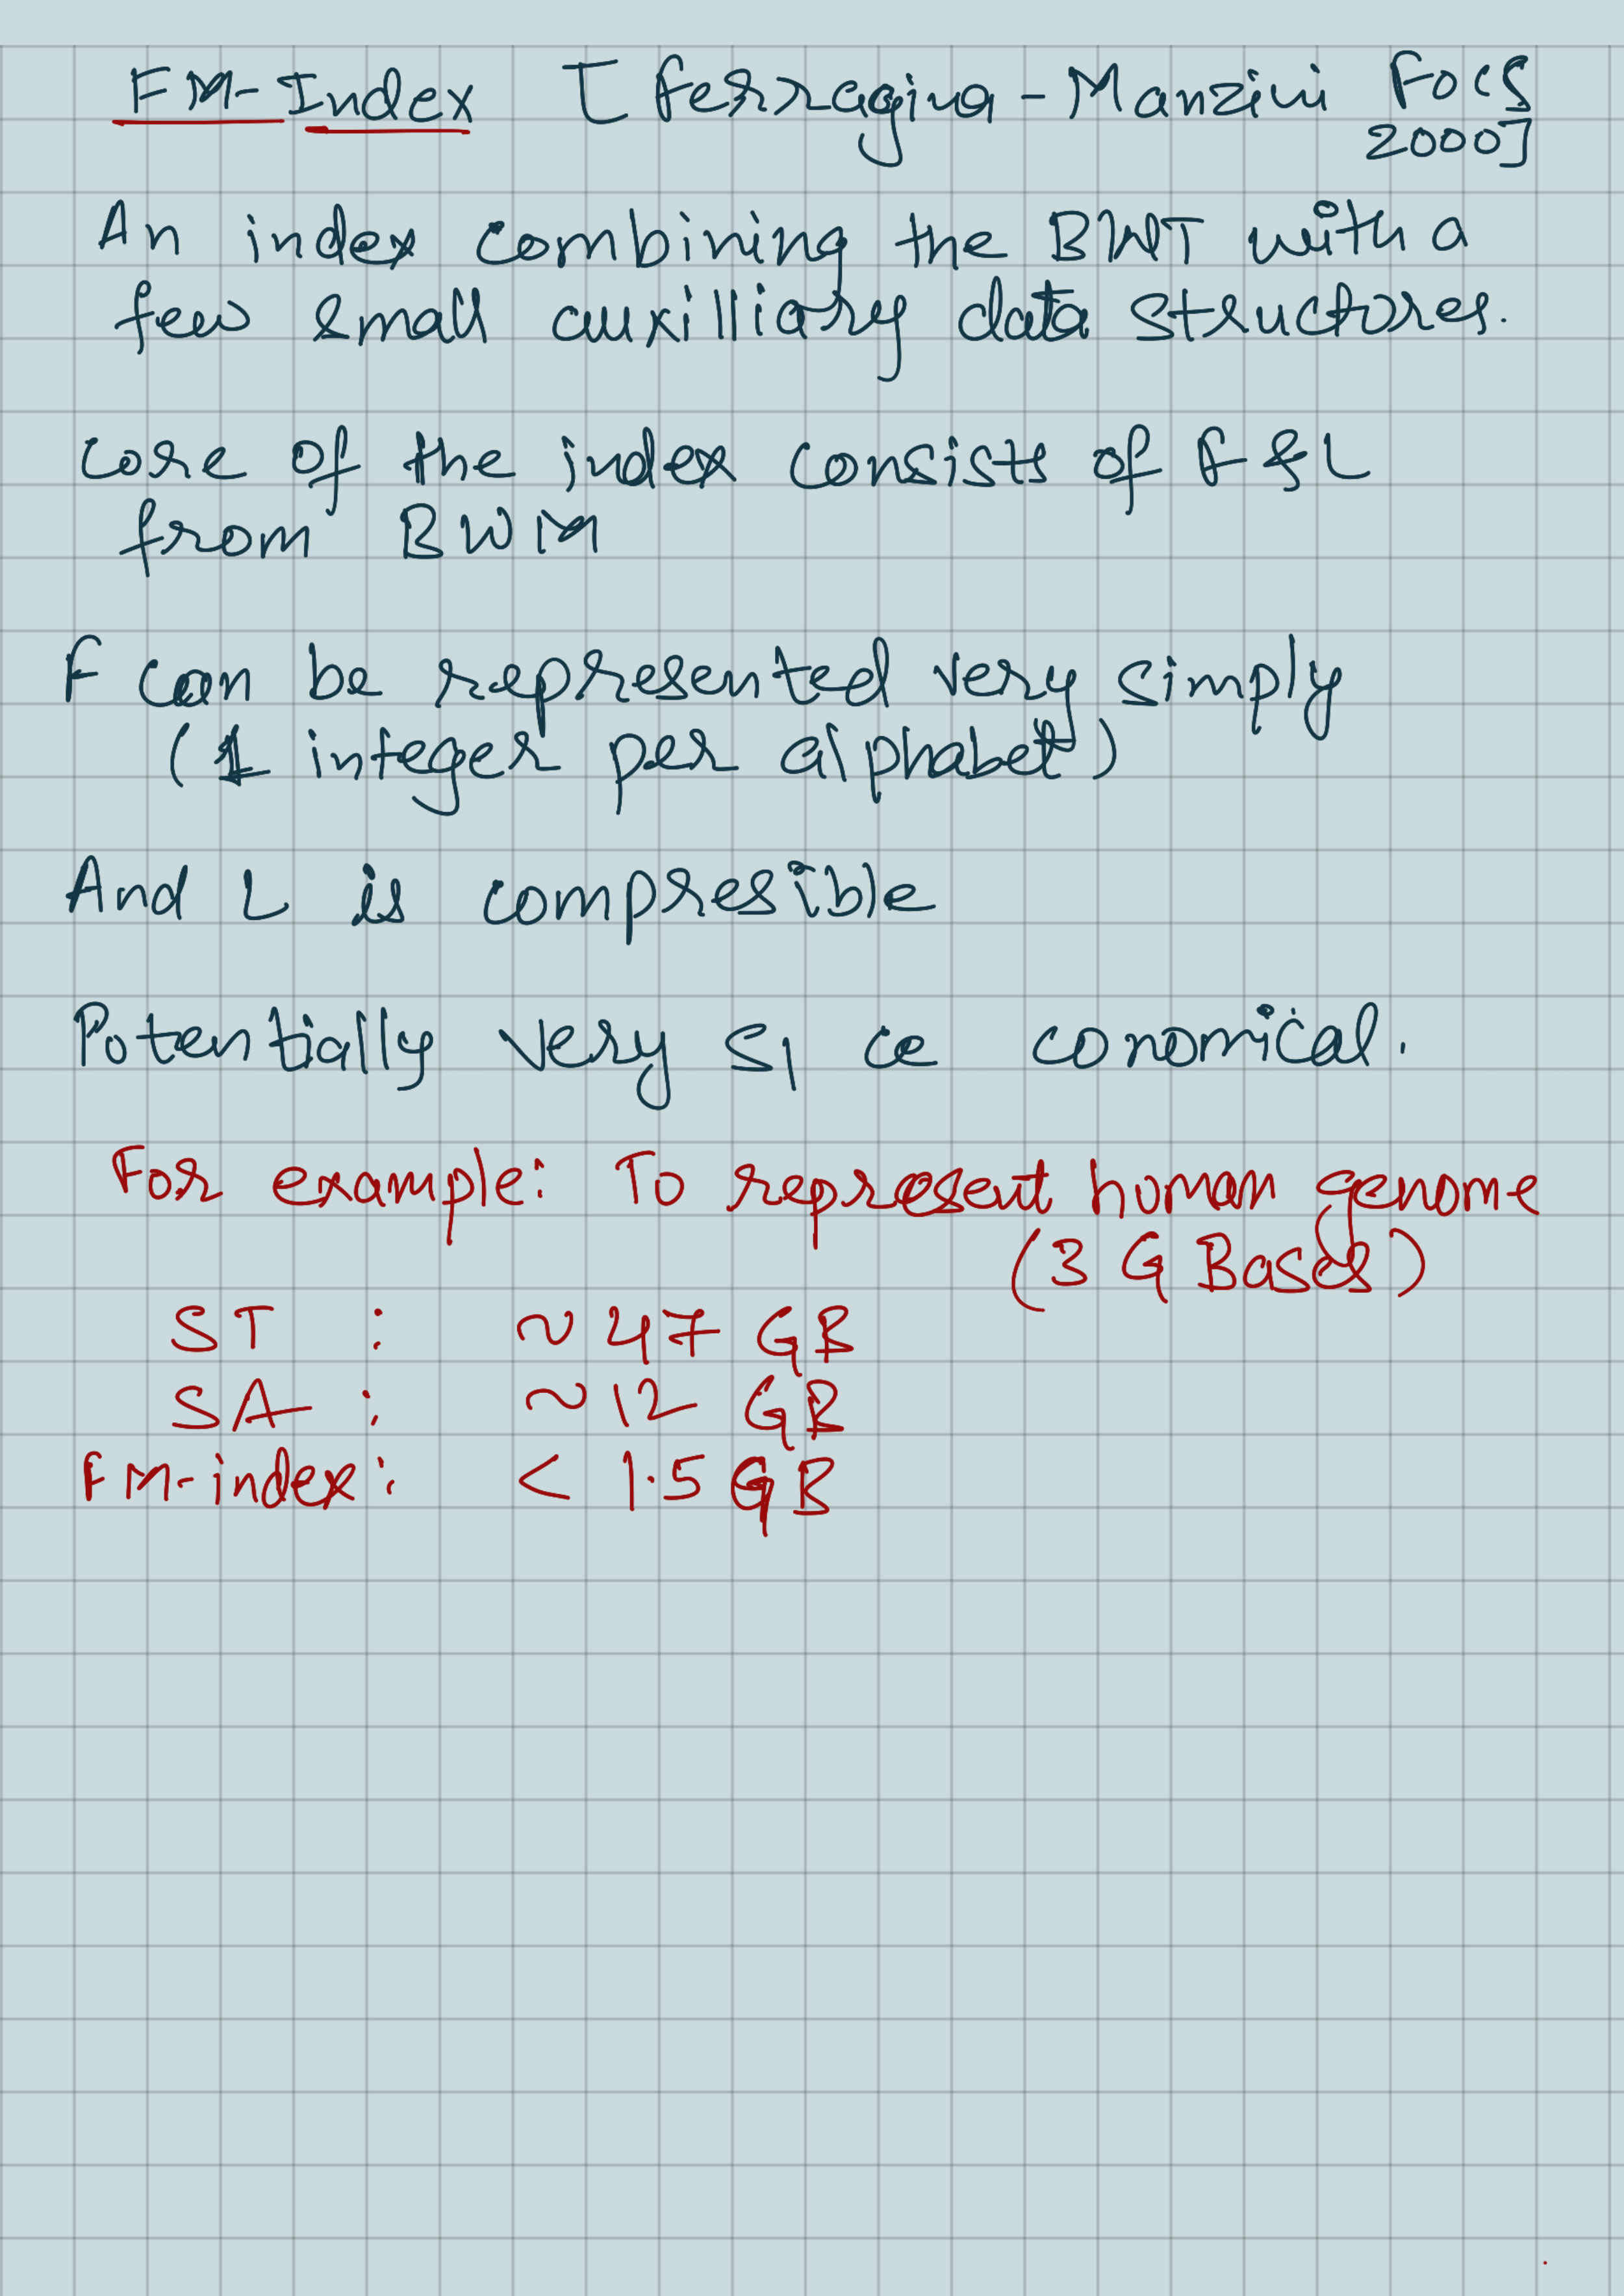 FM-Index [Ferragina-Manzini FOCS
2000]
An index combining the BWT with a
few small auxilliary data structures.
Core of the index consists of F & L
from BWM
F can be represented very simply
(1 integer per alphabet)
And L is compresible
Potentially very
For example: To represent human genome
(3 G Bases)
ST : ~ 47 GB
SA : ~ 12 GB
FM-index: < 1.5 GB